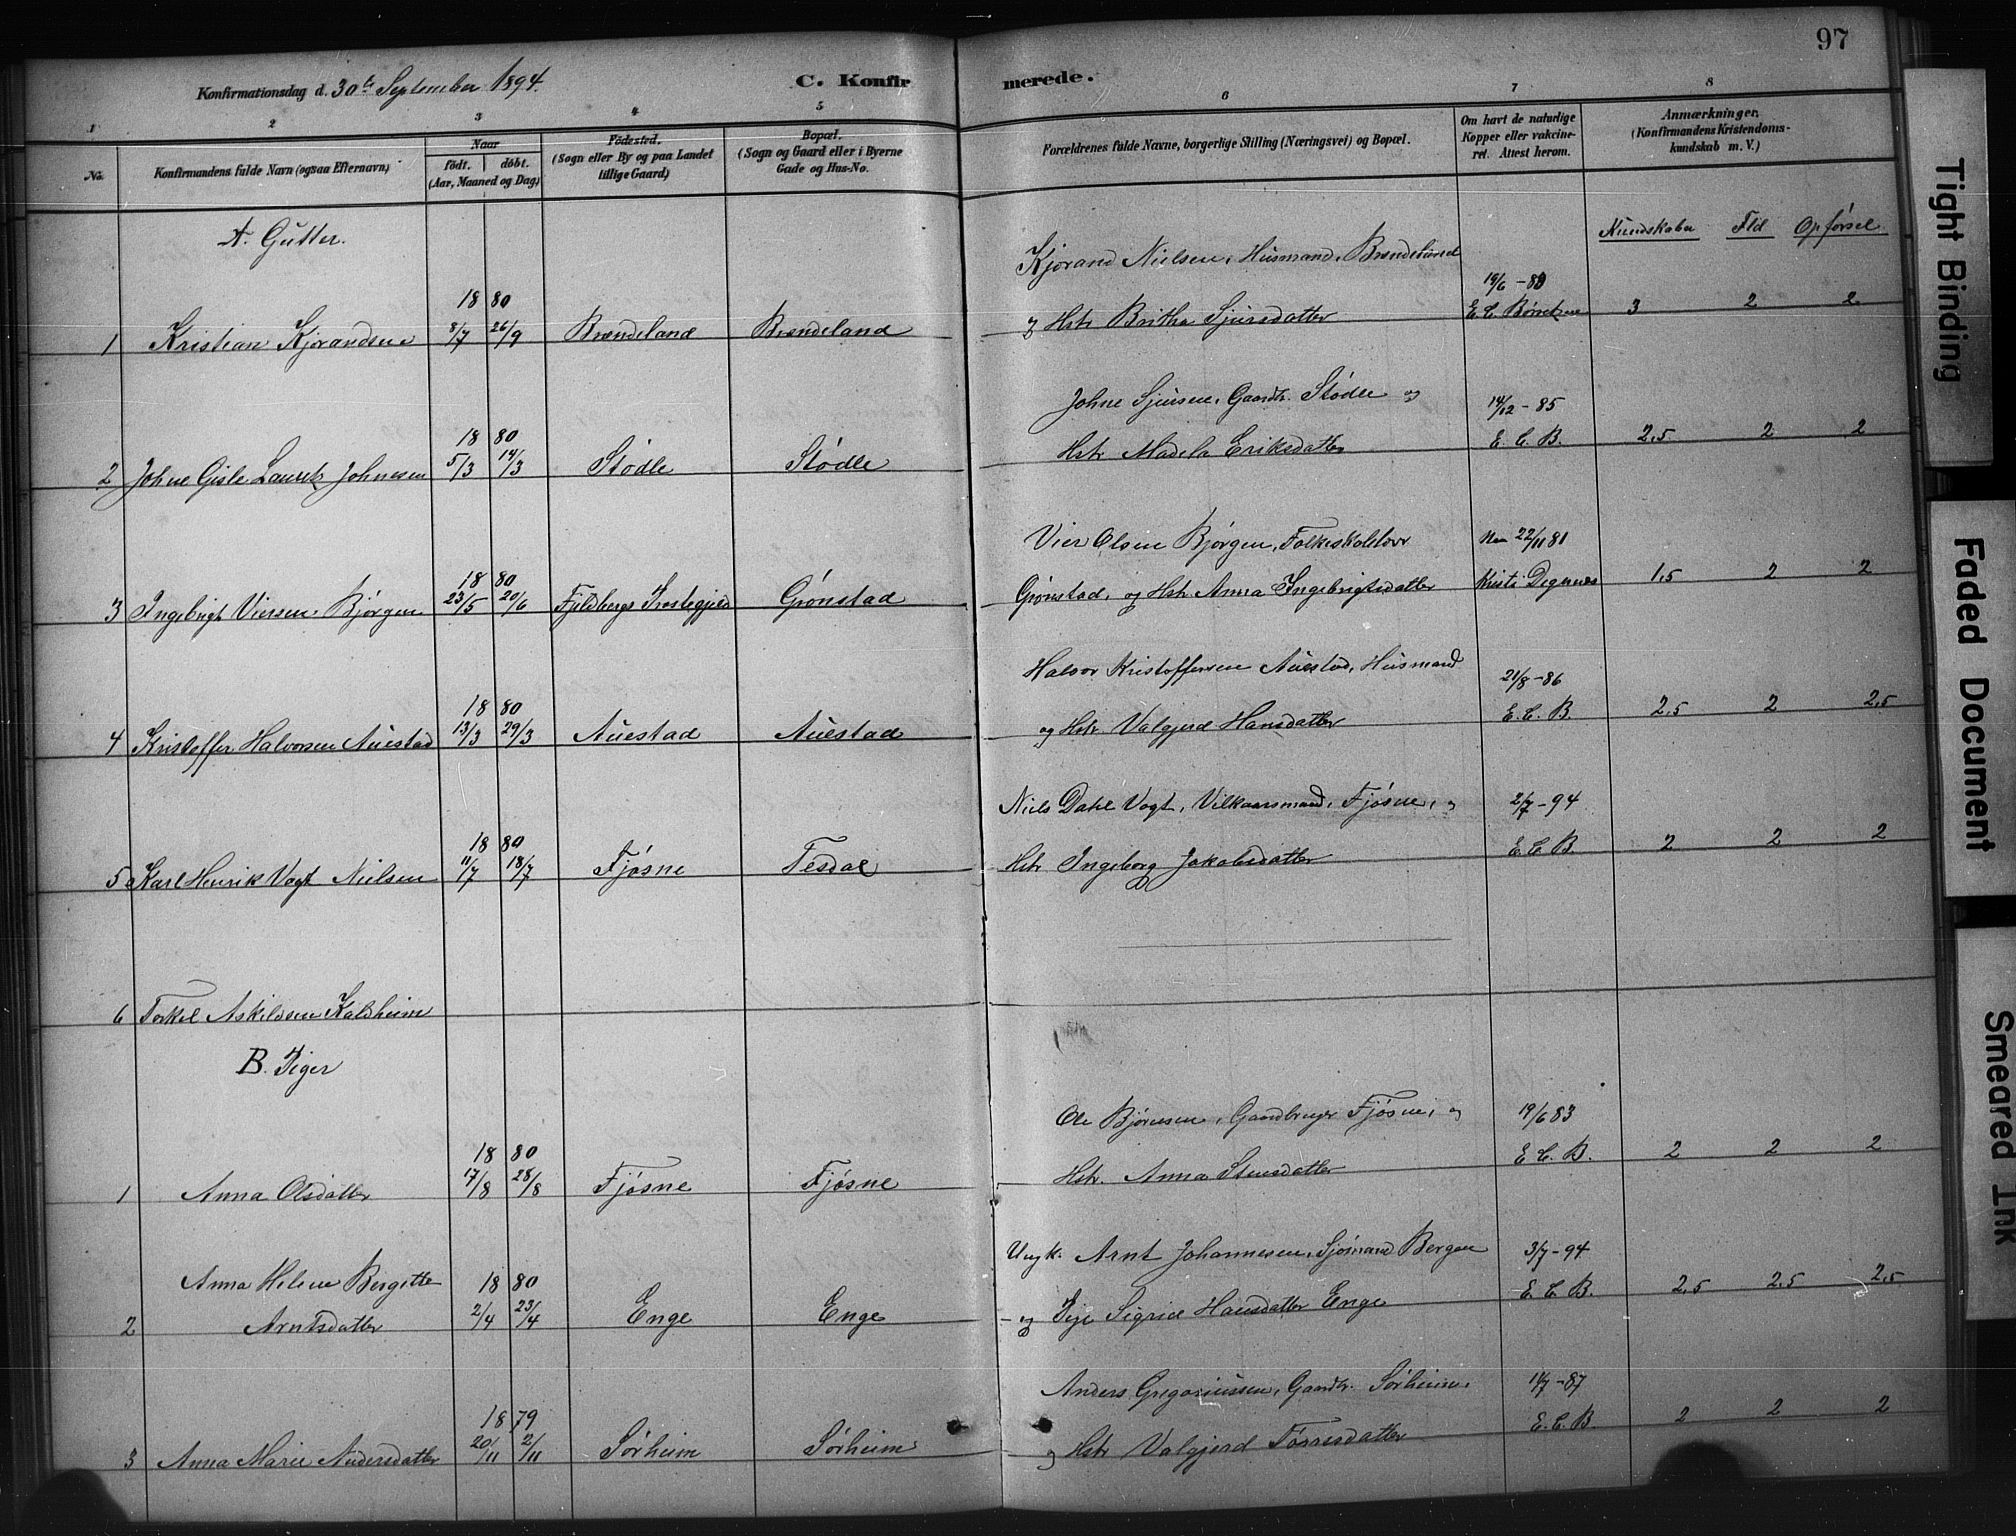 97
Konfirmationsdag d. 30te September 1894.
C. Konfirmerede.
1 2 3 4 5 6 7 8
No. Konfirmandens fulde Navn (ogsaa Efternavn) Naar født. døbt. (Aar, Maaned og Dag) Fødested. (Sogn eller By og paa Landet tillige Gaard) Bopæl. (Sogn og Gaard eller i Byerne Gade og Hus-No. Forældrenes fulde Navne, borgerlige Stilling (Næringsvei) og Bopæl. Om havt de naturlige Kopper eller vakcineret. Attest herom. Anmærkninger. (Konfirmandens Kristendomskundskab m. V.)
A. Gutter.
Kundskaber Flid Opførsel
Kjørand Nielsen, Husmand, Brendeland 19/6 - 80
18 80
1 Kristian Kjørandsen 8/7 26/9 Brendeland Brendeland og Hstr Britha Sjursdatter E. C. Børretzen 3 2 2
Johne Sjursen, Gaardbr. Stødle og 14/12 - 85
18 80
2 Johne Gisle Lauritz Johnesen 5/3 14/3 Stødle Stødle Hstr Madela Eriksdatter E. C. B. 2,5 2 2
Vier Olsen Bjørgen, Folkeskolelærer 22/11 81
18 80
3 Ingebrigt Viersen Bjørgen 23/5 20/6 Fjeldbergs Prestegjeld Grønstad Grønstad, og Hstr. Anna Ingebrigtsdatter Kristi Degernes 1,5 2 2
Halvor Kristoffersen Auestad, Husmand 21/8 - 86
18 80
4 Kristoffer Halvorsen Auestad 13/3 29/3 Auestad Auestad og Hstr. Valgjerd Hansdatter E. C. B. 2,5 2 2,5
Niels Dahl Vogt, Vilkaarsmand, Fjøsne, og 2/7 - 94
18 80
5 Karl Henrik Vogt Nielsen 11/7 18/7 Fjøsne Tesdal Hstr Ingeborg Jakobsdatter E. C. B. 2 2 2
6 Torkel Askildsen Kaldheim
B. Piger
Ole Bjørnsen, Gaardbruger Fjøsne, og 19/6 83
18 80
1 Anna Olsdatter 17/8 28/8 Fjøsne Fjøsne Hstr. Anna Stensdatter E. C. B. 2 2 2
Ungk. Arnt Johannesen, Sjømand Bergen 3/7 - 94
Anna Helene Bergitte 18 80
2 Arntsdatter 2/4 23/4 Enge Enge og Pige Sigrid Hansdatter Enge E. C. B. 2,5 2,5 2,5
Anders Gregoriussen, Gaardbr. Sørheim, 11/7 - 87
18 79
3 Anna Marie Andersdatter 20/11 2/11 Sørheim Sørheim og Hstr Valgjerd Tørresdatter E. C. B 2 2 2
Tight Binding
Faded Document
Smeared Ink